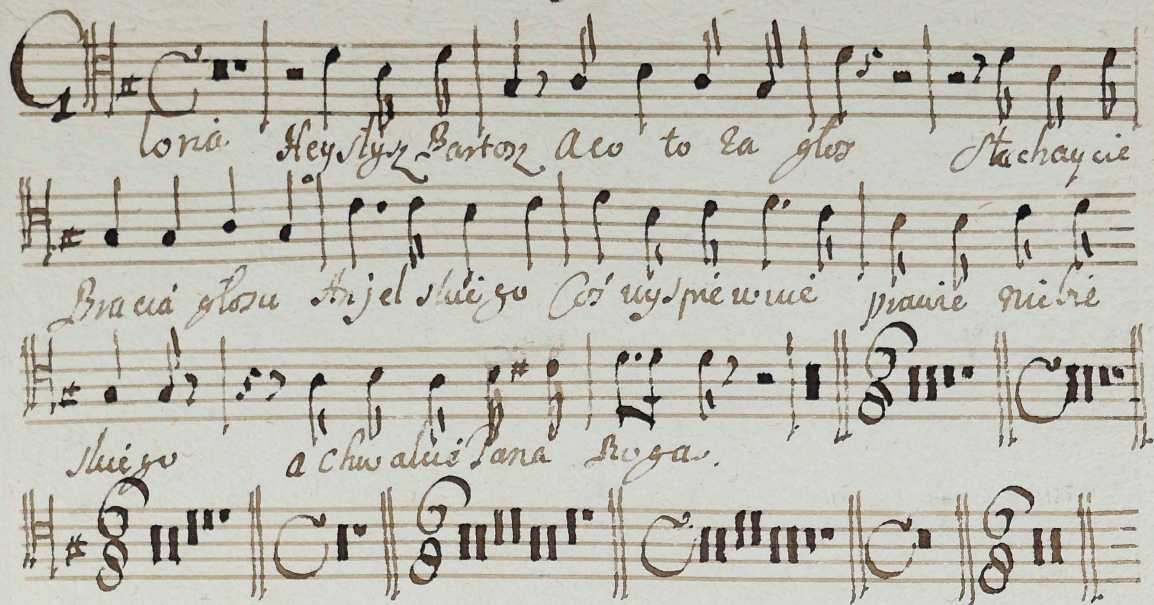 Gloria Hey słysz Bartosz A co to za głos Słuchaycie
Bracia głosu Anjel Coś wyspiewuie prawie
a chwaląc Pana Boga.